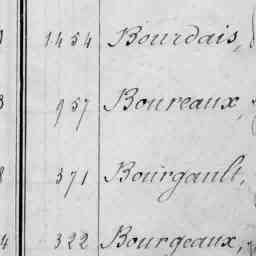 1454 Bourdais,
957 Boureaux,
371 Bourgault,
322 Bourgeaux,